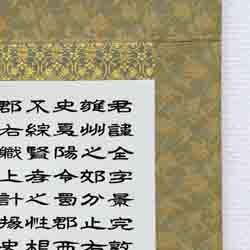 君諱全字景完敦
雍州之郊分止右
史夏陽令蜀郡西
不綜賢孝之性根
郡右職上計掾史